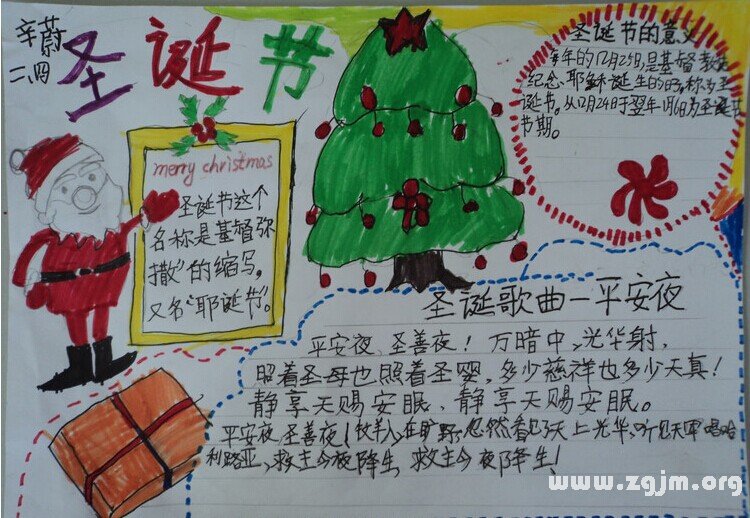 辛蔚
二、四
圣诞节
merry christmas
圣诞节这个
名称是基督弥
撒”的缩写，
又名“耶诞节”。
圣诞节的意义
年的12月25日，是基督教
纪念耶稣诞生的日，称为圣
诞节，从12月24日于翌年1月6日为圣诞节
节期。
圣诞歌曲—平安夜
平安夜、圣善夜！万暗中，光华射，
照着圣母也照着圣婴，多少慈祥也多少天真！
静享天赐安眠、静享天赐安眠。
平安夜，圣善夜！牧羊人，在旷野，忽然看见了天上光华，听见天军唱哈
利路亚，救主今夜降生 救主今夜降生！
www.zgjm.org